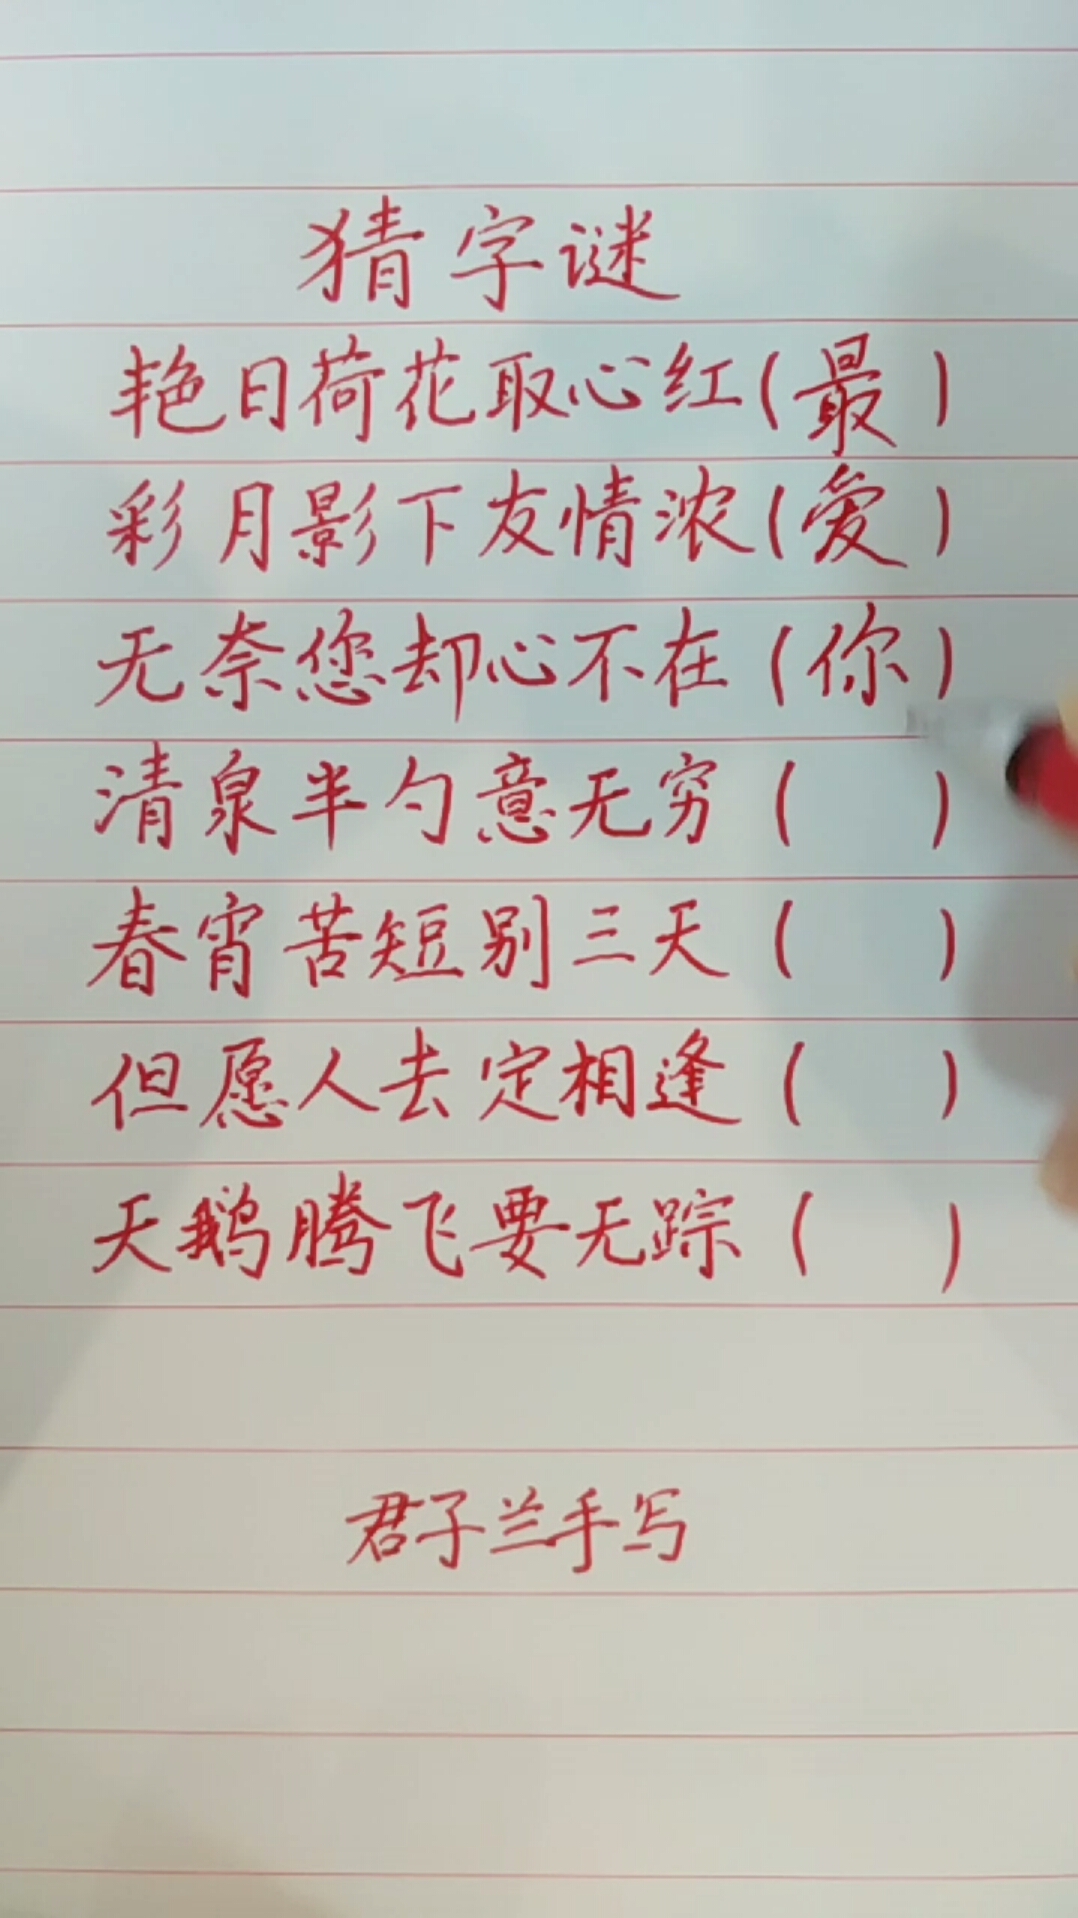 猜字谜
艳日荷花取心红(最)
彩月影下友情浓(爱)
无奈您却心不在(你)
清泉半勺意无穷( )
春宵苦短别三天( )
但愿人去定相逢( )
天鹅腾飞要无踪( )
君子兰手写